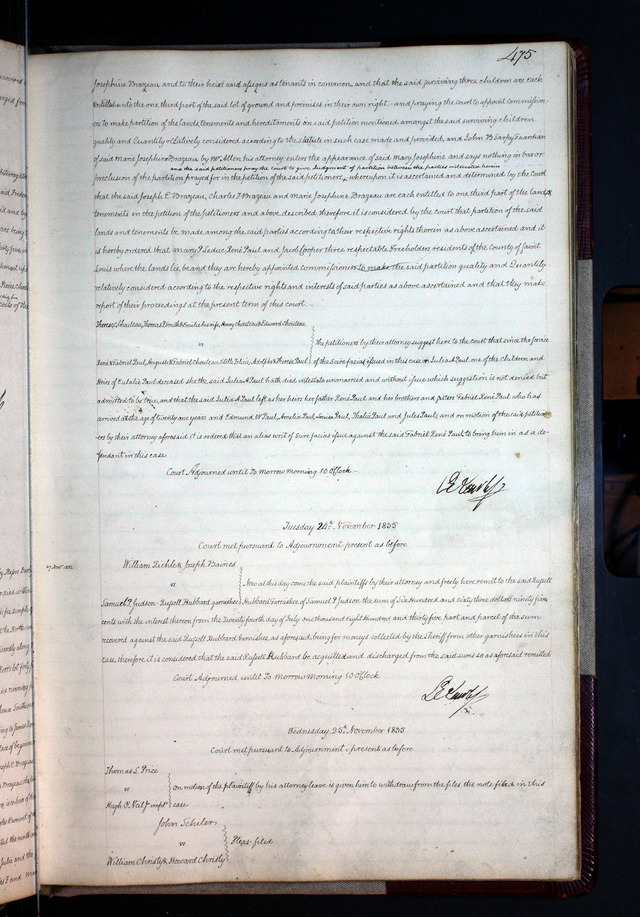 475
Josephine Brazeau and to their heirs and assigns as tenants in common, and that the said surviving three children are each
entitled unto the one third part of the said lot of ground and premises in their own right - and praying the court to appoint commission-
ers to make partition of the lands, tenements and hereditaments on said petition mentioned amongst the said surviving children
quality and Quantity relatively considered according to the statute in such case made and provided, and John B Sarpy Guardian
of said Marie Josephine Brazeau by Mr Allen, his attorney enters the appearance of said Mary Josephine and says nothing in bar or
and the said petitioners pray the court to give judgment of partition between the parties interested herein
preclusion of the partition prayed for in the petition of the said petitioners, whereupon it is ascertained and determined by the court
that the said Joseph E. Brazeau, Charles F. Brazeau and Marie Josephine Brazeau are each entitled to one third part of the land &
tenements in the petition of the petitioners and above described, therefore it is considered by the court that partition of the said
lands and tenements be made among the said parties according to their respective rights therein as above ascertained and it
is hereby ordered that Mary P. Leduc, René Paul and Jacob Cooper three respectable Freeholders residents of the county of Saint
Louis where the lands lie, be and they are hereby appointed commissioners to make the said partition quality and Quantity
relatively considered according to the respective rights and interests of said parties as above ascertained and that they make
report of their proceedings at the present term of this court
Therese C Chouteau, Thomas F Smith & Emilie his wife, Henry Chouteau & Edward Chouteau
vs
The petitioners by their attorney suggest here to the court that since the service
René & Gabriel Paul, Auguste & Gabriel Chouteau, Edth Feline, Adolphe & Therese Paul
of the scire facias issued in this case on Julia A Paul one of the Children and
Heirs of Eulalie Paul deceased she the said Julia A Paul hath died intestate unmarried and without issue which suggestion is not denied but
admitted to be true, and that the said Julia A Paul left as her heirs her father René Paul and her brothers and sisters Gabriel René Paul who has
arrived at the age of twenty one years and Edmund W Paul, Amelia Paul, Louisa Paul, Thalia Paul and Jules Paul; and on motion of the said petition-
ers by their attorney aforesaid it is ordered that an alias writ of scire facias issue against the said Gabriel René Paul to bring him in as a de-
fendant in this case
Court Adjourned until To Morrow Morning 10 Oclock
Tuesday 24th November 1835
Court met pursuant to Adjournment present as before
William Richle & Joseph Baines
vs
Now at this day come the said plaintiffs by their attorney and freely here remit to the said Russell
Samuel P. Judson - Russell Hubbard garnishee
Hubbard Garnishee of Samuel P. Judson the sum of Six Hundred and sixty three dollars ninety five
cents with the interest thereon from the Twenty fourth day of July one thousand Eight hundred and thirty five part and parcel of the sum
recovered against the said Russell Hubbard Garnishee as aforesaid, being for moneys collected by the Sheriff from other garnishees in this
case, therefore it is considered that the said Russell Hubbard be acquitted and discharged from the said sum so as aforesaid remitted
Court Adjourned until To Morrow Morning 10 Oclock
Wednesday 25th November 1835
Court met pursuant to Adjournment, present as before
Thomas L Price
vs
on motion of the plaintiff by his attorney leave is given him to withdraw from the files the note filed in this
Hugh O. Neil Jr impd
case
John Schuler
vs
Pleas filed
William Christy & Howard Christy